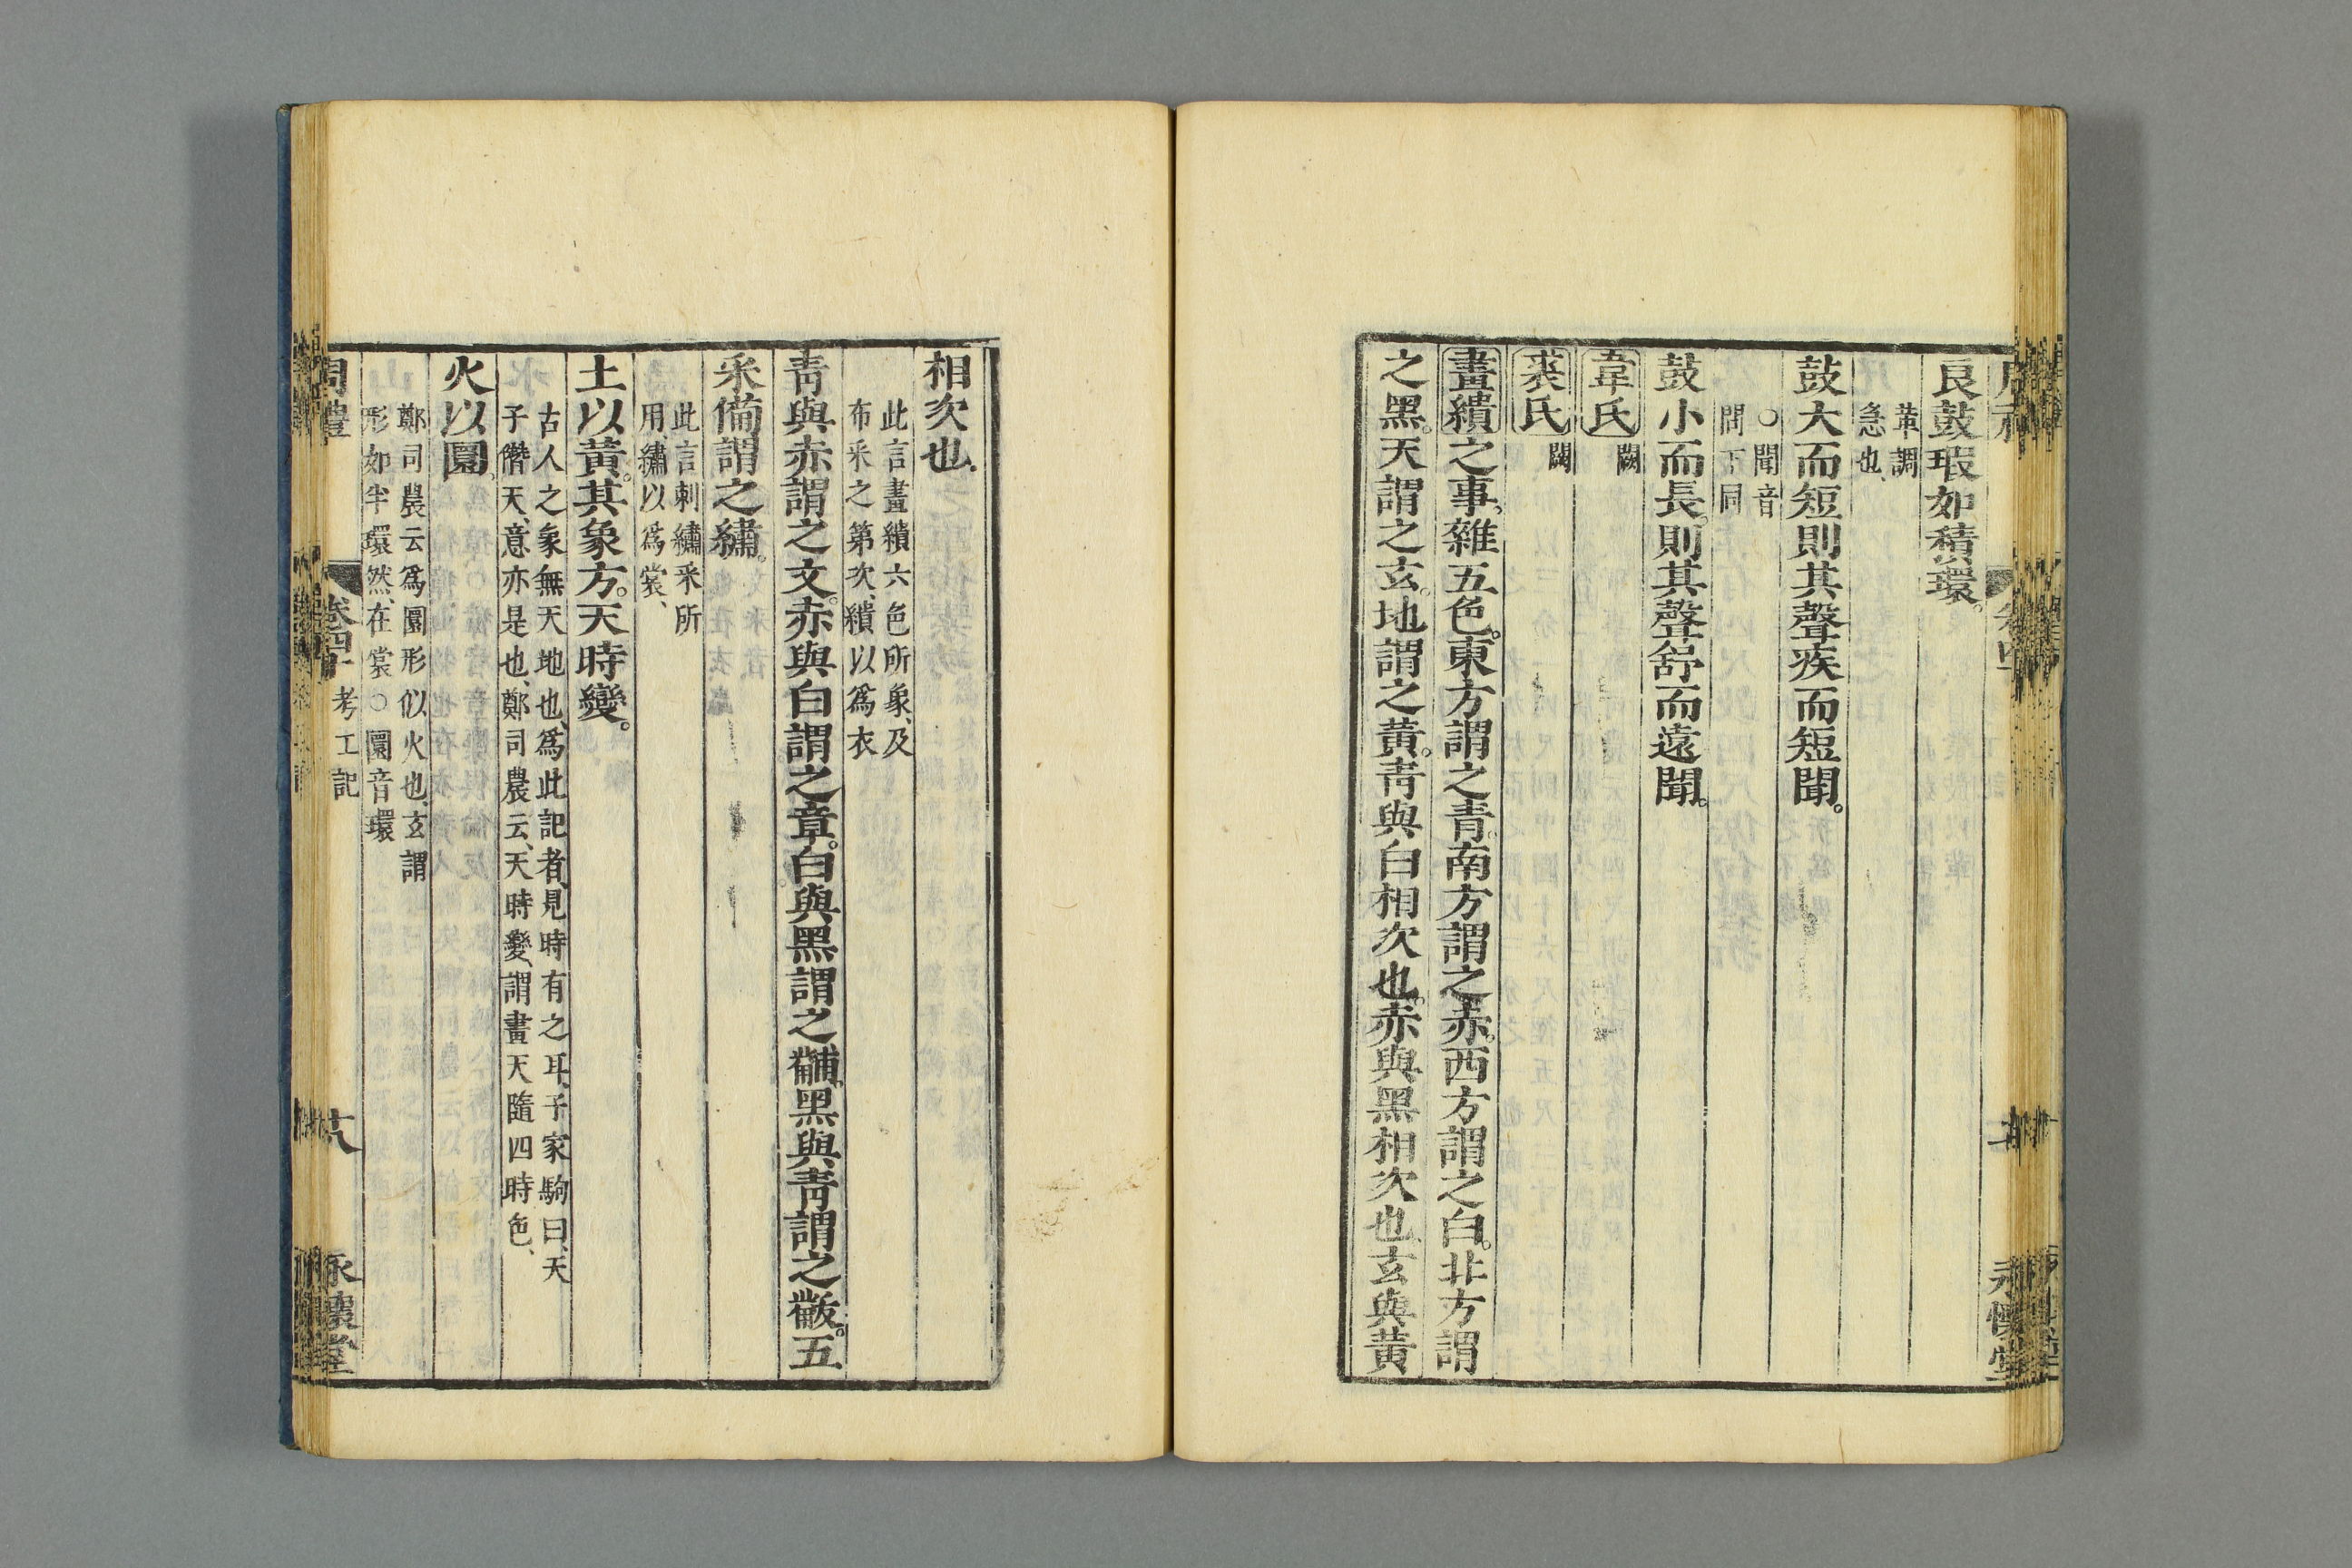 良鼓瑕如積環。
革調
急也、
鼓大而短則其聲疾而短聞。
〇聞音
問下同
鼓小而長。則其聲舒而遠聞。
韋氏 闕
裘氏 闕
畫繢之事。雜五色。東方謂之青。南方謂之赤。西方謂之白。北方謂
之黑。天謂之玄。地謂之黃。青與白相次也。赤與黑相次也。玄與黃
永懷堂
相次也。
此言畫繢六色所象、及
布采之第次、繢以為衣
青與赤謂之文。赤與白謂之章。白與黑謂之黼。黑與青謂之黻。五
采備謂之繡。
此言刺繡采所
用、繡以為裳、
土以黃。其象方。天時變。
古人之象無天地也、為此記者、見時有之耳、子家駒曰、天
子僭天、意亦是也、鄭司農云、天時變、謂畫天隨四時色、
火以圜。
鄭司農云為圜形似火也、玄謂
形如半環然、在裳〇圜音環
周禮 卷四十 考工記 十八 永懷堂